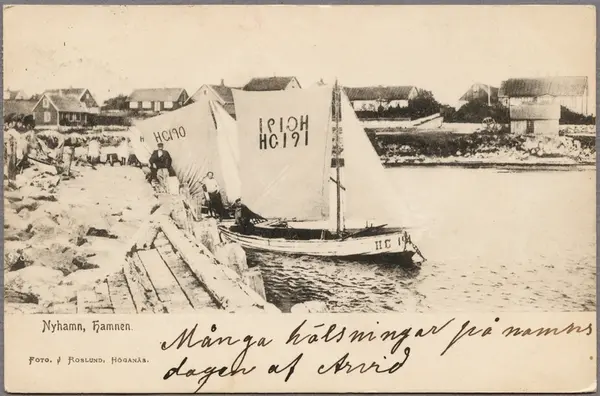 HC190
HC191
HC191
HC 191
Nyhamn, Hamnen.
FOTO. J ROSLUND, HÖGANÄS.
Många hälsningar på namns
dagen af Arvid